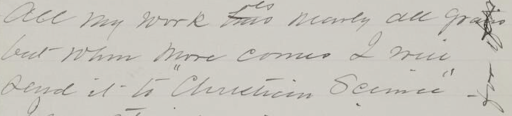 All my work has nearly all gratis
but when more comes I will
send it to "Christian Science"
for